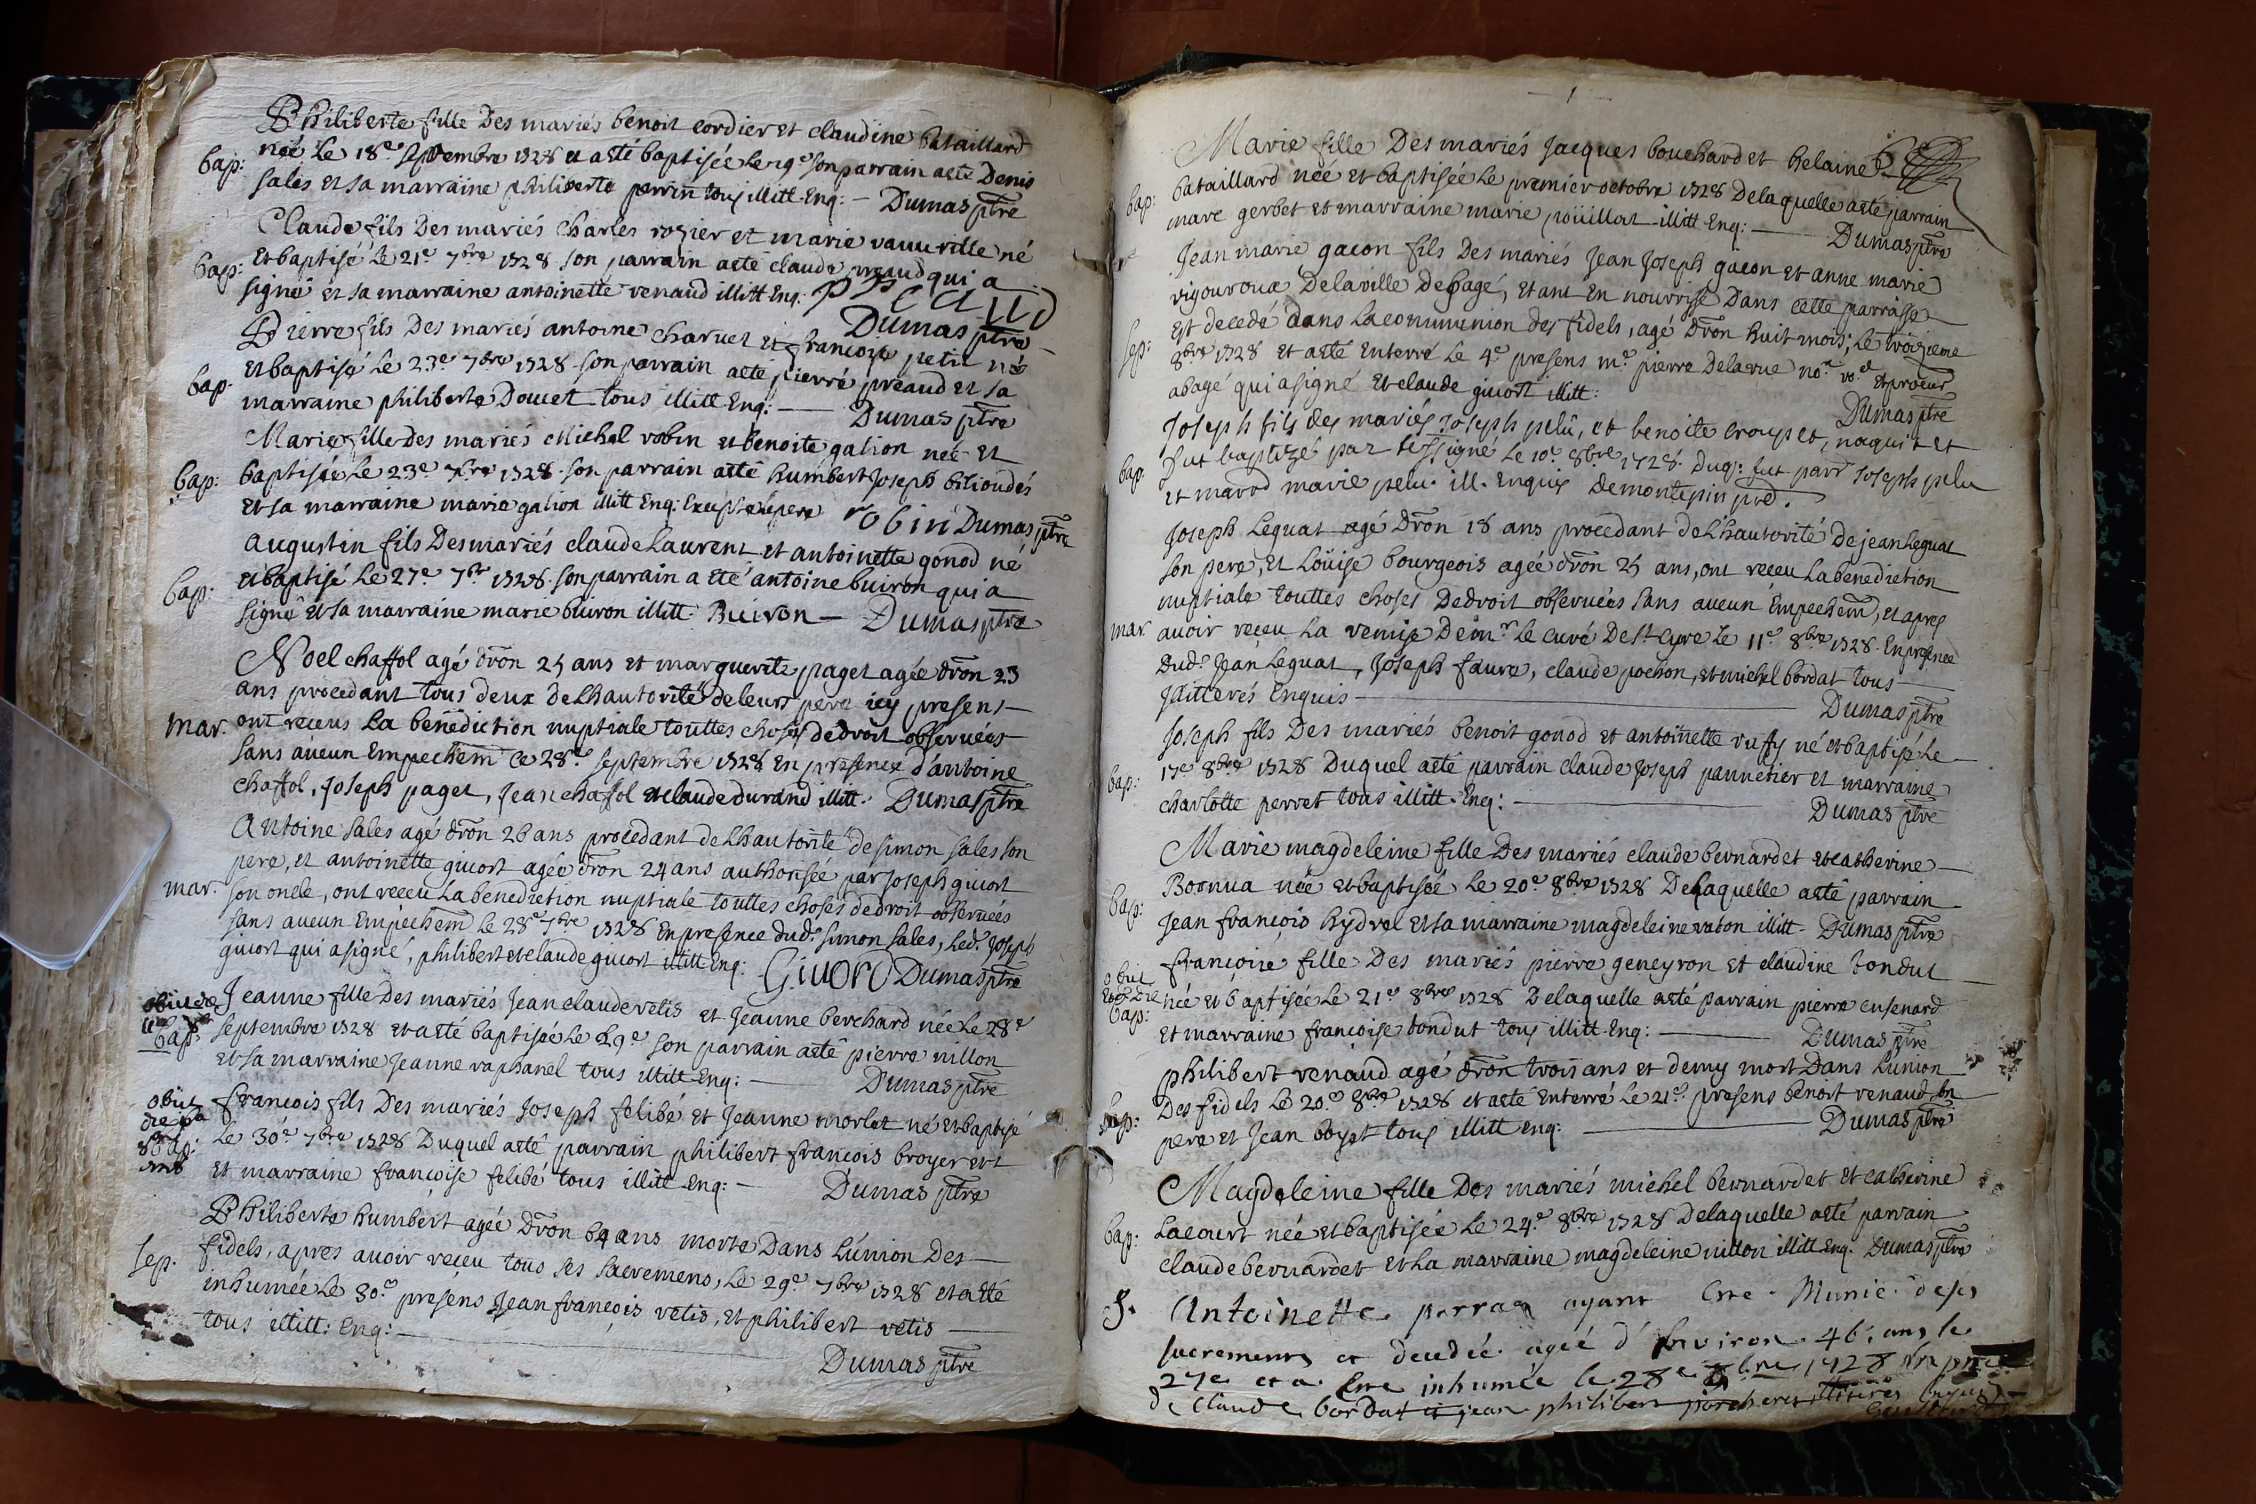 Philiberte fille Des mariés benoit cordier et claudine bataillard
bap: née Le 18e septembre 1728 et a esté baptisée Le 19e son parrain a esté Denis
sales et sa marraine philiberte perrin tous illitt. Enq: — Dumas ptre
Claude fils Des mariés Charles rosier et marie vauurille né
bap: et baptisé Le 21e 7bre 1728 son parrain a esté claude preaud qui a
signé et sa marraine antoinette renaud illitt Enq: preaud
Dumas ptre
Pierre fils Des mariés antoine charvet et francoise petit né
bap. et baptisé Le 23e 7bre 1728 son parrain a esté pierre preaud et sa
marraine philiberte Doucet tous illitt Enq: — Dumas ptre
Marie fille Des mariés Michel robin et benoite galion née et
bap: baptisée Le 23e 7bre 1728 son parrain a esté humbert Joseph bilioudés
et sa marraine marie galion illitt Enq: Excepté le pere robin Dumas ptre
augustin fils Des mariés claude Laurent et antoinette gonod né
bap: et baptisé Le 27e 7br 1728 son parrain a eté antoine buiron qui a
signé et sa marraine marie buiron illitt. Buiron — Dumas ptre
Noel chaffol agé dron 25 ans et marguerite paget agée dron 23
ans procedant tous deux de Lhautorité de leurs pere icy present
mar. ont receus La benediction nuptiale touttes choses de droit observées
sans aucun Empechem ce 28e septembre 1728 En presence d'antoine
chaffol, Joseph paget, Jean chaffol et claude durand illitt. Dumas ptre
antoine sales agé dron 26 ans procedant de Lhautorité de simon sales son
pere, et antoinette givort agée dron 24 ans authorisée par Joseph givort
mar. son oncle, ont receu La benediction nuptiale touttes choses de droit observées
sans aucun Empechem Le 28e 7bre 1728 En presence dud. simon sales, Led. Joseph
givort qui a signé, philibert et claude givort illitt Enq: Givort Dumas ptre
Jeanne fille Des mariés Jean claude vetis et Jeanne berchard née Le 28e
bap: septembre 1728 et a esté baptisée Le 29e son parrain a esté pierre nillon
et sa marraine Jeanne raphanel tous illitt Enq: — Dumas ptre
obiit francois fils Des mariés Joseph felibé et Jeanne morlet né et baptisé
bap. Le 30e 7bre 1728 Duquel a esté parrain philibert francois broyer et
et marraine francoise felibé tous illitt Enq: — Dumas ptre
Philiberte humbert agée Dron 64 ans morte Dans Lúnion Des
sep. fidels, apres avoir receu tous ses sacremens, Le 29e 7bre 1728 et a esté
inhumée Le 30e presens Jean francois vetis, et philibert vetis
tous illitt: Enq: —
Dumas ptre
Marie fille Des mariés Jacques bouchard et helaine
bap: bataillard née et baptisée Le premier octobre 1728 De laquelle a esté parrain
marc gerbet et marraine marie pouillat illitt Enq: — Dumas ptre
Jean marie gacon fils Des mariés Jean Joseph gacon et anne marie
vigouroux De la ville De bagé, Etant En nourrisse Dans cette parroisse
sep: Est decedé dans La communion des fidels, agé dron huit mois, Le troizieme
8bre 1728 et a esté Enterré Le 4e presens me pierre Delarue nore ro.l et procur
a bagé qui a signé Et claude givort illitt: Dumas ptre
Joseph fils des mariés Joseph pelu, et benoite croupet, naquit et
bap. fut baptizé par le ssigné Le 10e 8bre 1728. duq: fut parr Joseph pelu
et marrd marie pelu. ill. Enquis Demontepin pre.
Joseph Leguat agé Dron 18 ans procedant de Lhautorité de jean Leguat
son pere, et Loüise bourgeois agée dron 25 ans, ont receu La benediction
nuptiale touttes choses De droit observées sans aucun Empechem, et apres
mar. avoir receu La remise De mr Le curé De st cyre Le 11e 8bre 1728. En presence
dud. Jean Leguat, Joseph faure, claude pochon, et michel bordat tous
Jllitterés Enquis — Dumas ptre
Joseph fils Des mariés benoit gonod et antoinette ruffy né et baptisé Le
bap: 17e 8bre 1728 Duquel a esté parrain claude Joseph pannetier et marraine
charlotte perret tous illitt. Enq: — Dumas ptre
Marie magdeleine fille Des mariés claude bernardet et catherine
bap: Bonnua née et baptisée Le 20e 8bre 1728 De laquelle a esté parrain
Jean françois hydrel et sa marraine magdeleine raton illitt. Dumas ptre
obiit francoise fille Des mariés pierre geneyron et claudine tondut
bap: née et baptisée Le 21e 8bre 1728 De laquelle a esté parrain pierre cusenard
et marraine francoise tondut tous illitt. Enq: — Dumas ptre
philibert renaud agé dron trois ans et demy mort Dans Lunion
sep: Des fidels Le 20e 8bre 1728 et a esté Enterré Le 21e presens benoit renaud son
pere et Jean boyat tous illitt Enq: — Dumas ptre
Magdeleine fille Des mariés michel bernardet et catherine
bap: Lacourt née et baptisée Le 24e 8bre 1728 De laquelle a esté parrain
claude bernardet et La marraine magdeleine nillon illitt Enq. Dumas ptre
S. Antoinette perraq ayant Este Munie des
sacrements et decedée agée d'Environ 46 ans le
27e et a Este inhumée le 28e 8bre 1728 En pnce
de Claude bordat et jean philibert porcherez illitérés Enquis